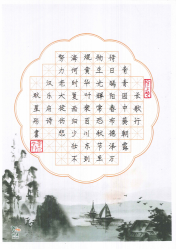 长歌行
青青园中葵朝露
待日晞阳春布德泽万
物生光辉常恐秋节至
焜黄华叶衰百川东到
海何时复西归少壮不
努力老大徒伤悲
汉乐府诗